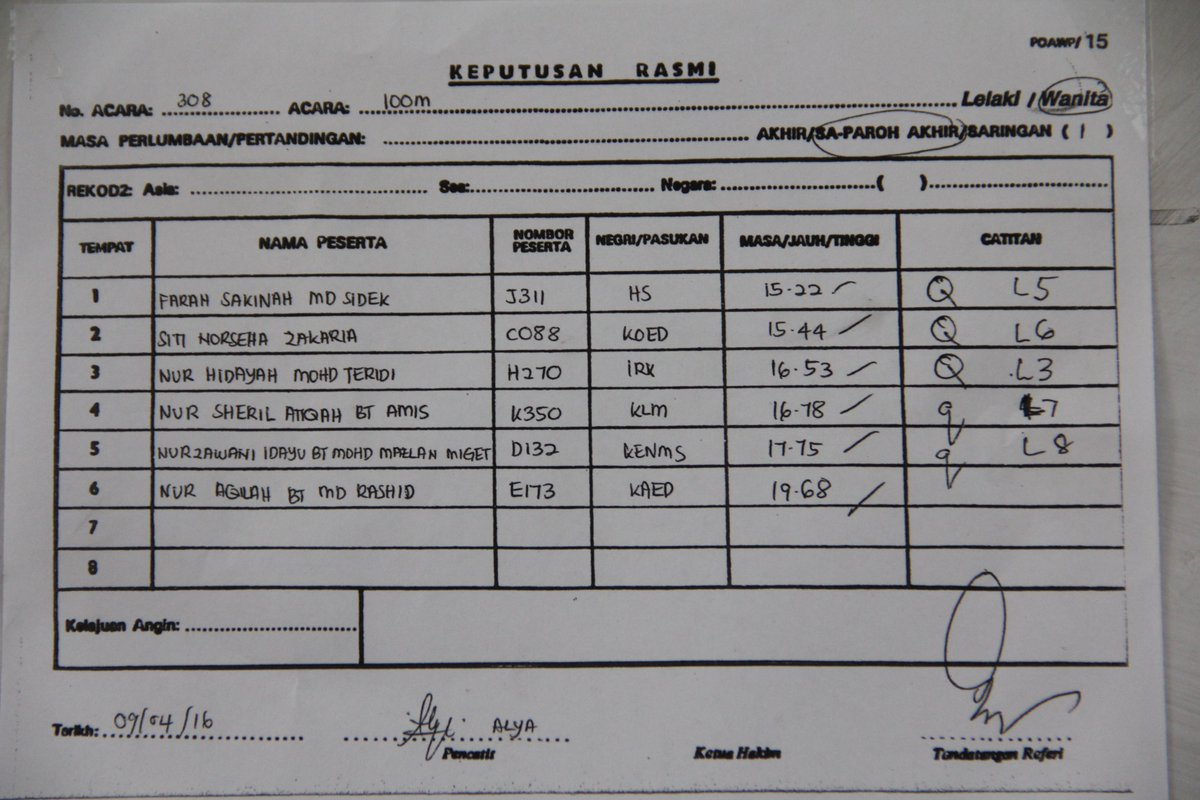 POAWP/ 15
KEPUTUSAN RASMI
No. ACARA: 308 ACARA: 100m Lelaki / Wanita
MASA PERLUMBAAN/PERTANDINGAN: AKHIR/SA-PAROH AKHIR/SARINGAN ( 1 )
REKOD2: Asia: Sea: Negara: ( )
TEMPAT NAMA PESERTA NOMBOR PESERTA NEGRI/PASUKAN MASA/JAUH/TINGGI CATITAN
1 FARAH SAKINAH MD SIDEK J311 HS 15.22 Q L5
2 SITI NORSEHA ZAKARIA C088 KOED 15.44 Q L6
3 NUR HIDAYAH MOHD TERIDI H270 IRK 16.53 Q L3
4 NUR SHERIL ATIQAH BT AMIS K350 KLM 16.78 q L7
5 NURZAWANI IDAYU BT MOHD MAELAN MIGET D132 KENMS 17.75 q L8
6 NUR AQILAH BT MD RASHID E173 KAED 19.68
7
8
Kelajuan Angin:
Tarikh: 09/04/16 ALYA
Pencatit Ketua Hakim Tandatangan Referi